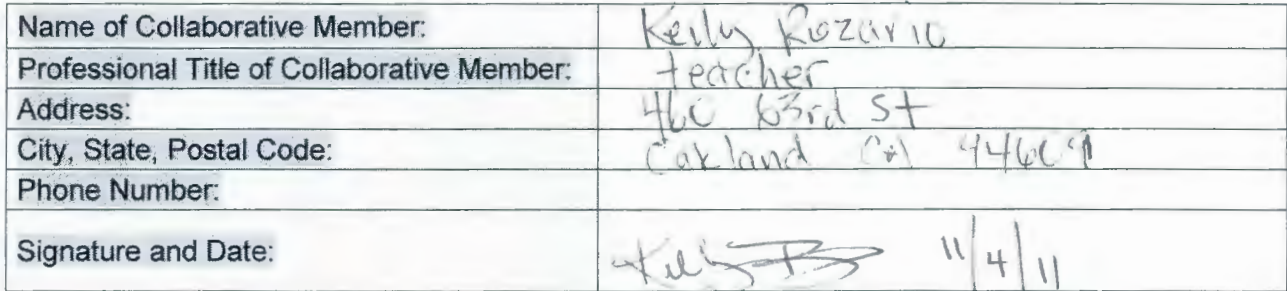 Name of Collaborative Member: Kelly Rozario
Professional Title of Collaborative Member: teacher
Address: 460 63rd St
City, State, Postal Code: Oakland CA 94609
Phone Number:
Signature and Date: 11/4/11